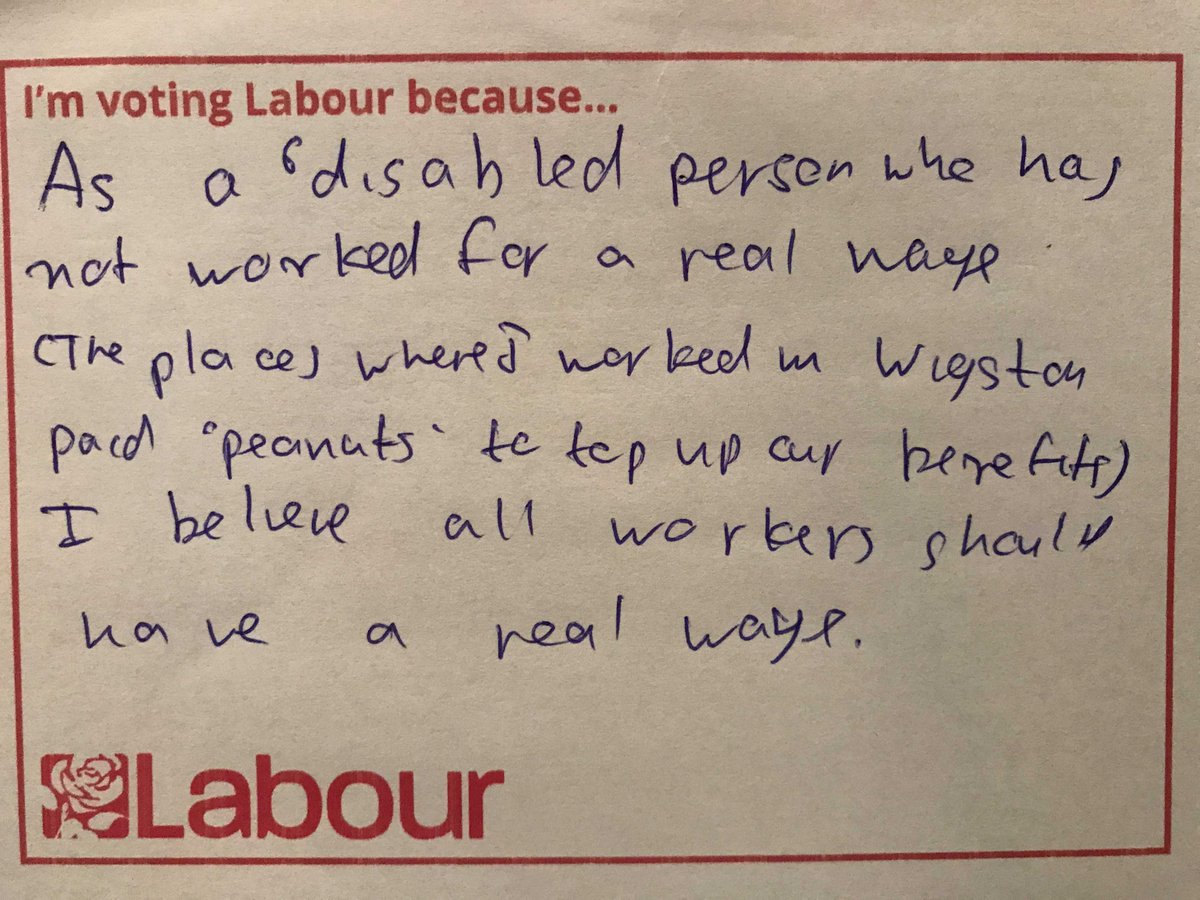 I'm voting Labour because...
As a 'disabled person who has
not worked for a real wage
(The places where I worked in Wigston
paid 'peanuts' to top up our benefits)
I believe all workers should
have a real wage.
Labour